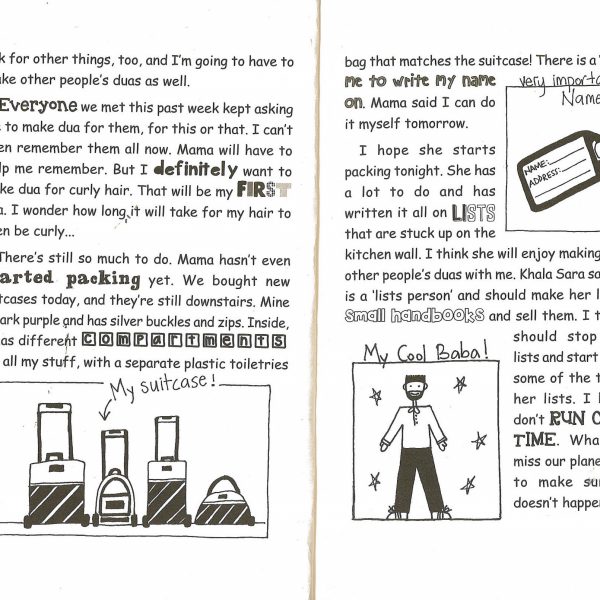 k for other things, too, and I'm going to have to
ke other people's duas as well.
Everyone we met this past week kept asking
e to make dua for them, for this or that. I can't
en remember them all now. Mama will have to
lp me remember. But I definitely want to
ke dua for curly hair. That will be my FIRST
a. I wonder how long it will take for my hair to
en be curly...
There's still so much to do. Mama hasn't even
arted packing yet. We bought new
tcases today, and they're still downstairs. Mine
ark purple and has silver buckles and zips. Inside,
as different COMPARTMENTS
all my stuff, with a separate plastic toiletries
My suitcase!
bag that matches the suitcase! There is a
me to write my name
on. Mama said I can do
it myself tomorrow.
very importa
Name
NAME:
ADDRESS:
I hope she starts
packing tonight. She has
a lot to do and has
written it all on LISTS
that are stuck up on the
kitchen wall. I think she will enjoy making
other people's duas with me. Khala Sara sa
is a 'lists person' and should make her l
small handbooks and sell them. I t
should stop
lists and start
some of the t
her lists. I
don't RUN O
TIME. Wha
miss our plane
to make sur
doesn't happen
My Cool Baba!